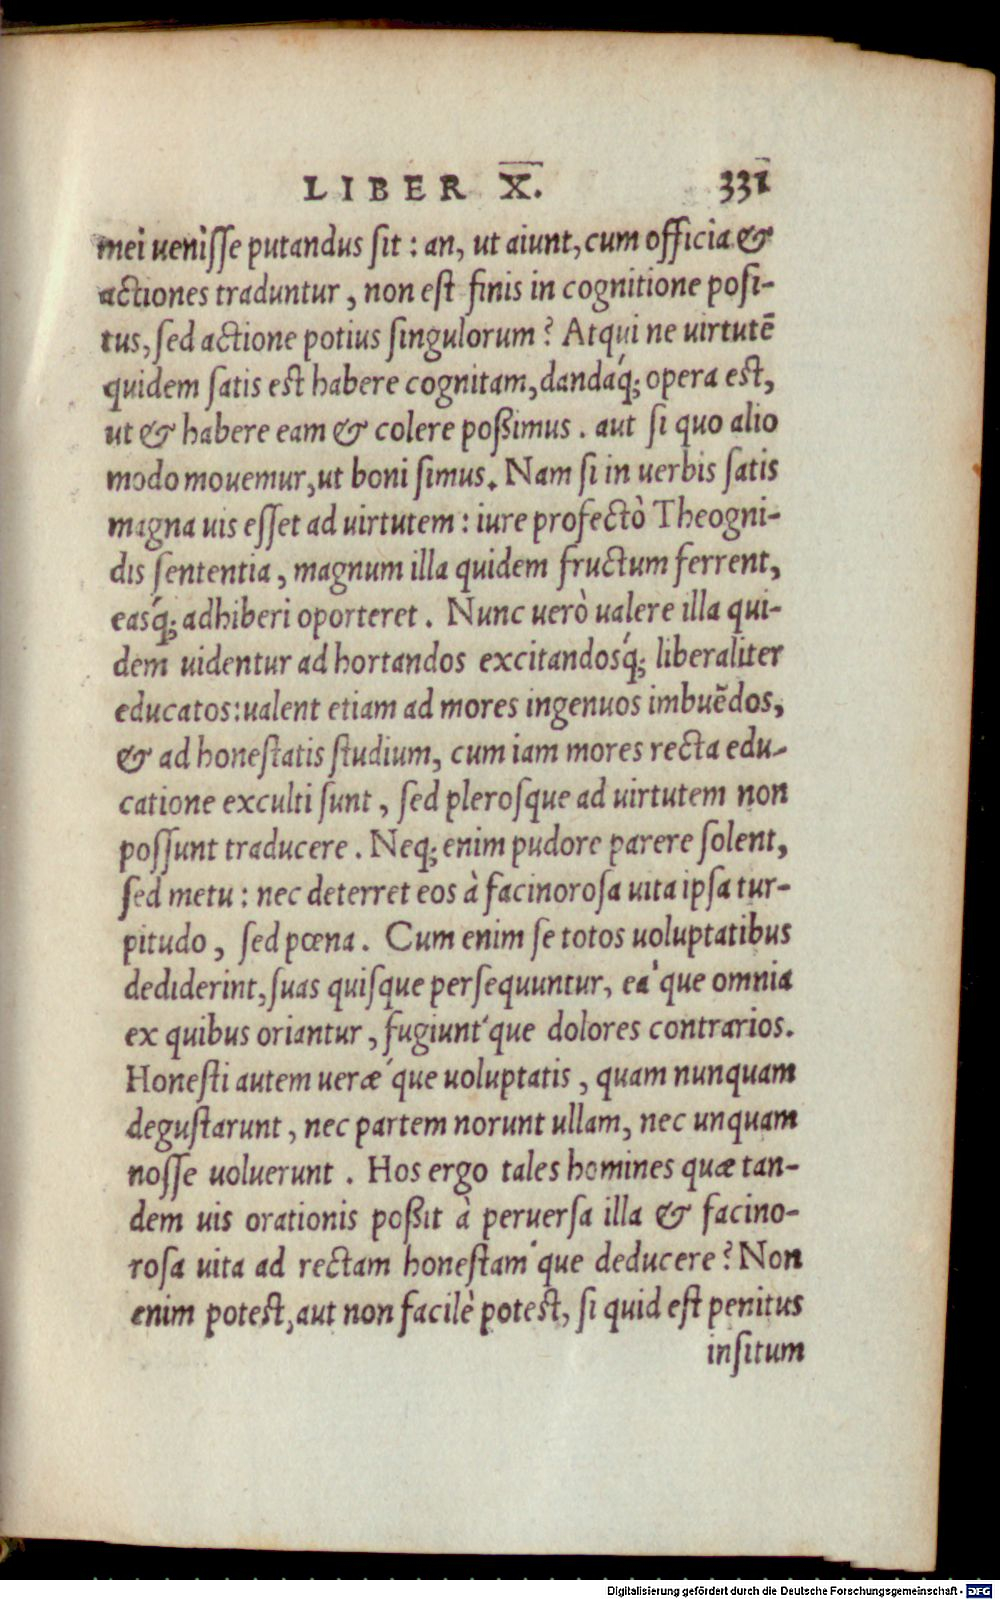 LIBER X. 331
mei uenisse putandus sit : an, ut aiunt, cum officia &
actiones traduntur, non est finis in cognitione posi-
tus, sed actione potius singulorum? Atqui ne uirtutē
quidem satis est habere cognitam, dandáq; opera est,
ut & habere eam & colere poßimus. aut si quo alio
modo mouemur, ut boni simus. Nam si in uerbis satis
magna uis esset ad uirtutem : iure profectò Theogni-
dis sententia, magnum illa quidem fructum ferrent,
easq́; adhiberi oporteret. Nunc uerò ualere illa qui-
dem uidentur ad hortandos excitandosq́; liberaliter
educatos: ualent etiam ad mores ingenuos imbuēdos,
& ad honestatis studium, cum iam mores recta edu-
catione exculti sunt, sed plerosque ad uirtutem non
possunt traducere. Neq; enim pudore parere solent,
sed metu : nec deterret eos à facinorosa uita ipsa tur-
pitudo, sed pœna. Cum enim se totos uoluptatibus
dediderint, suas quisque persequuntur, eá que omnia
ex quibus oriantur, fugiunt´que dolores contrarios.
Honesti autem ueræ´que uoluptatis, quam nunquam
degustarunt, nec partem norunt ullam, nec unquam
nosse uoluerunt. Hos ergo tales homines quæ tan-
dem uis orationis poßit à peruersa illa & facino-
rosa uita ad rectam honestam´que deducere? Non
enim potest, aut non facilè potest, si quid est penitus
insitum
Digitalisierung gefördert durch die Deutsche Forschungsgemeinschaft - DFG